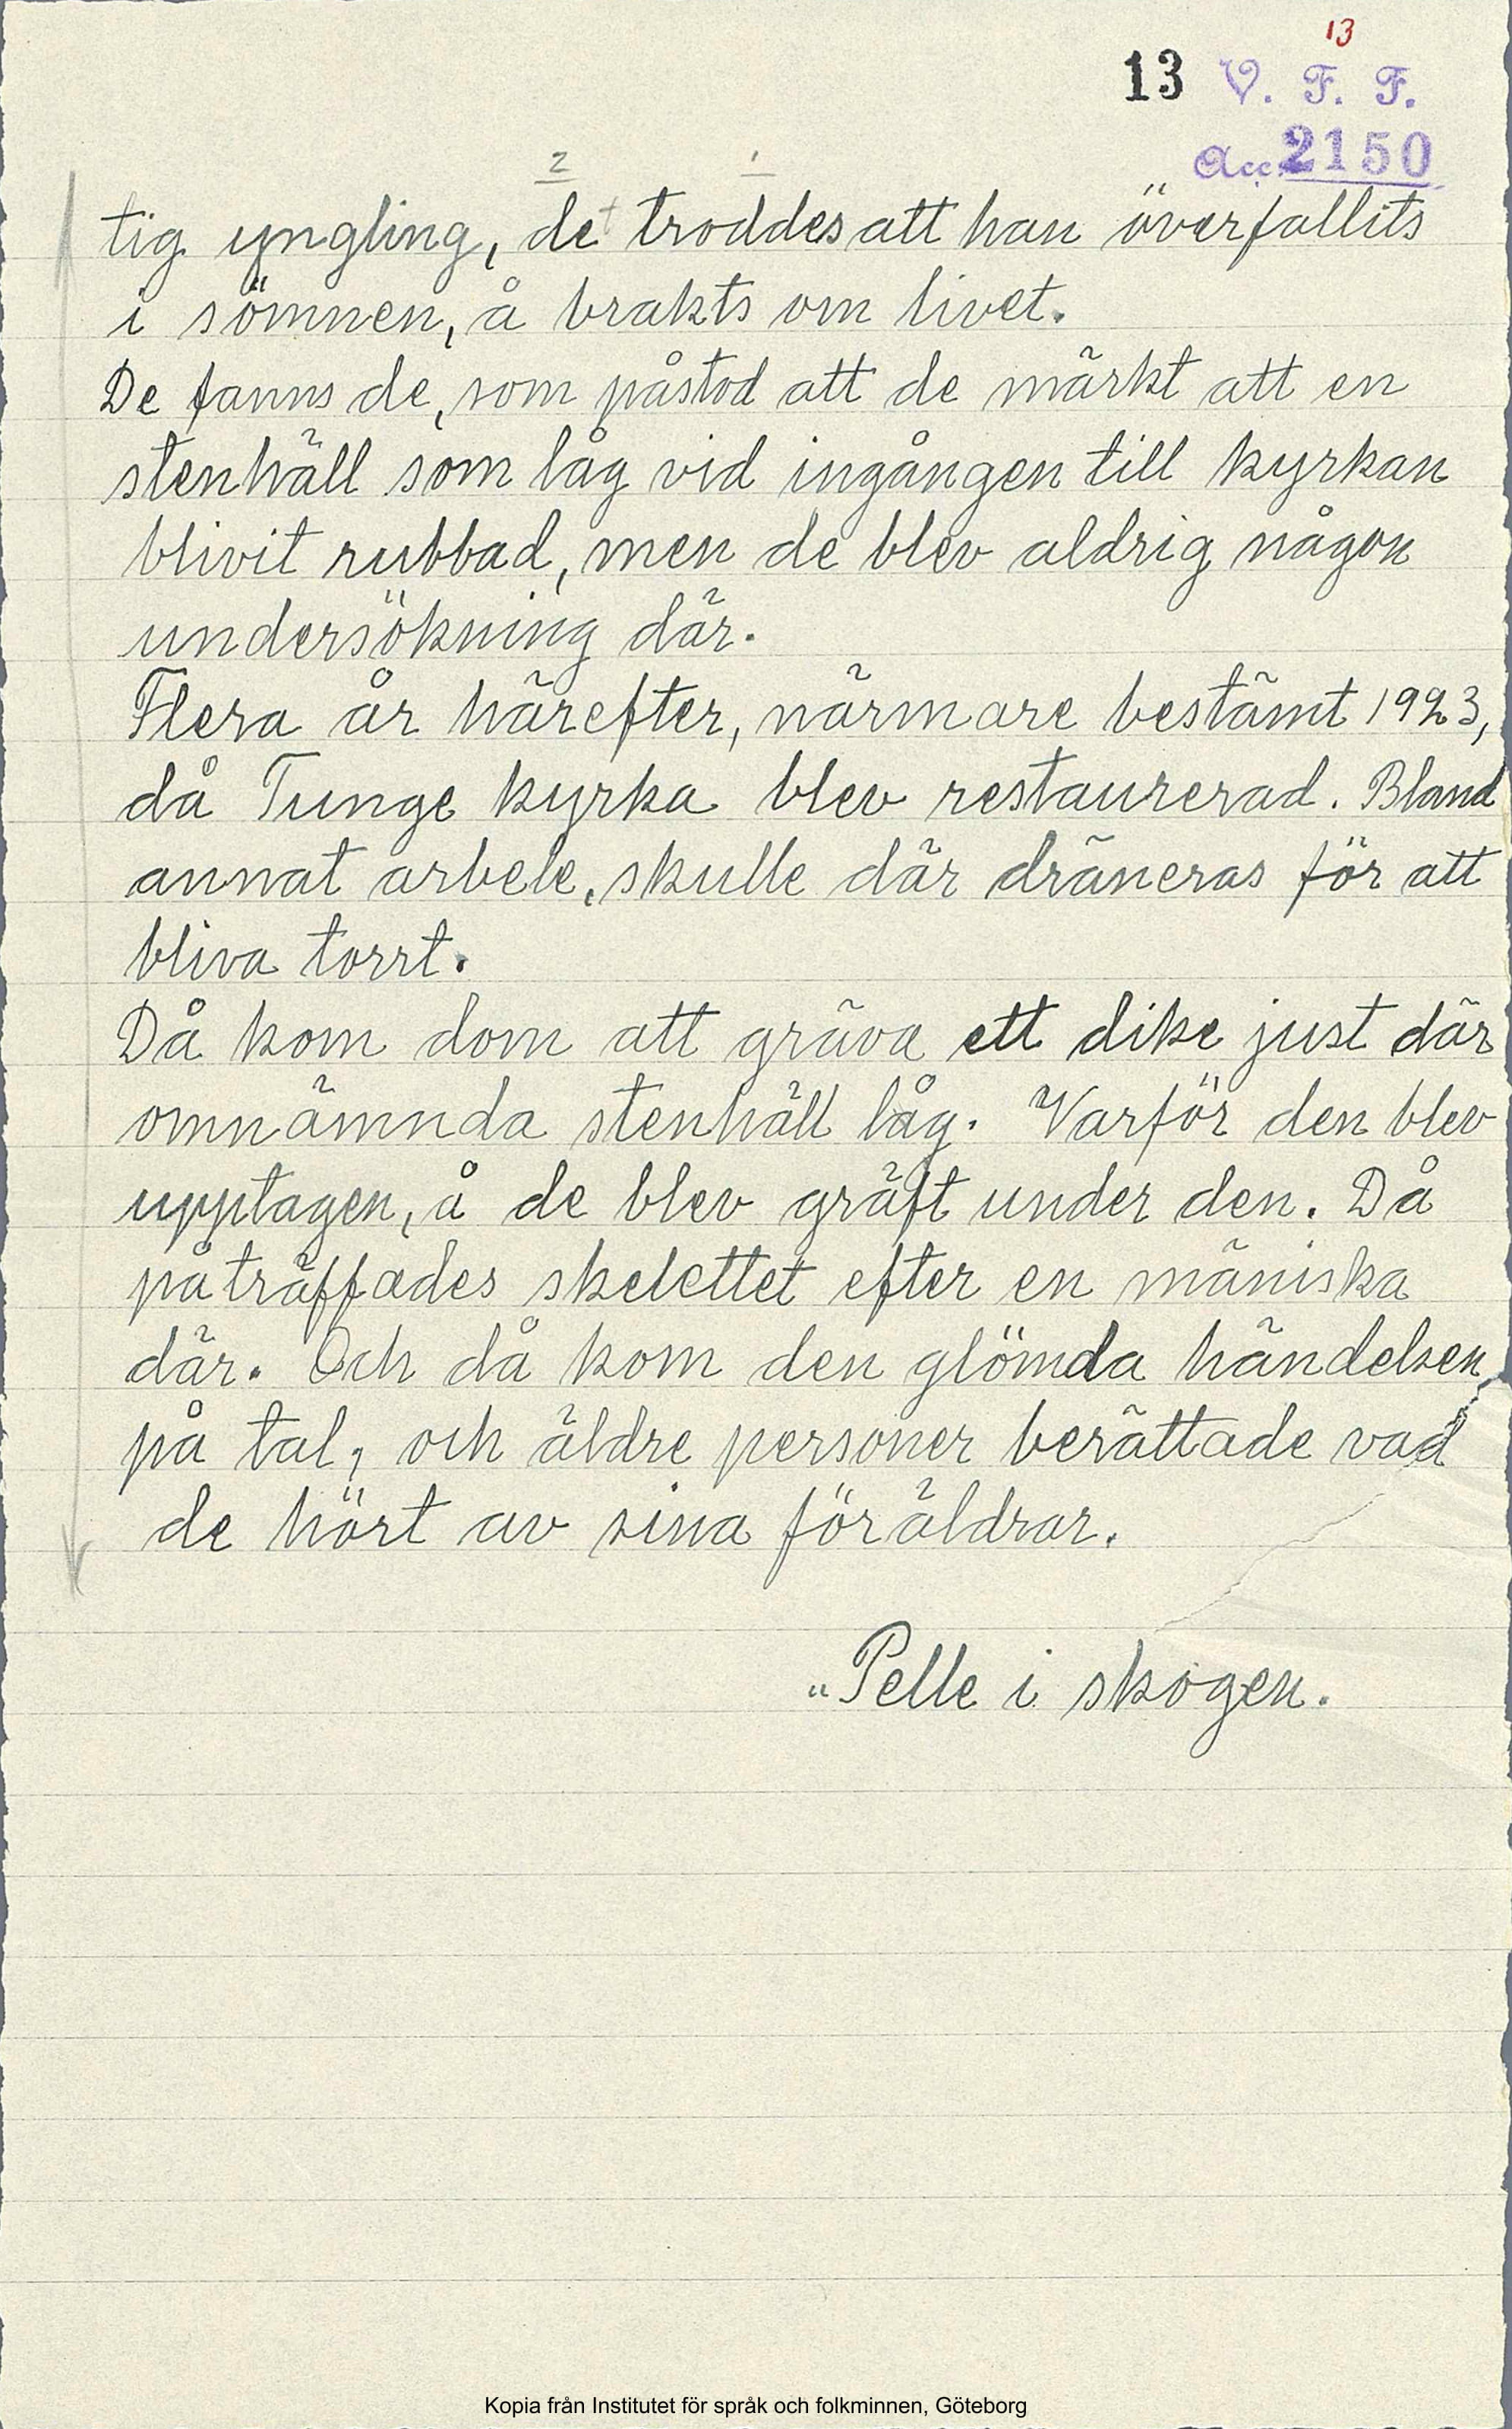 13
13 V. F. F.
Acc. 2150
2 1
tig yngling, det troddes att han överfallits
i sömnen, å brakts om livet.
De fanns de, som påstod att de märkt att en
stenhäll som låg vid ingången till kyrkan
blivit rubbad, men de blev aldrig någon
undersökning där.
Flera år härefter, närmare bestämt 1923,
då Tunge kyrka blev restaurerad. Bland
annat arbete, skulle där dräneras för att
bliva torrt.
Då kom dom att gräva ett dike just där
omnämnda stenhäll låg. Varför den blev
upptagen, å de blev gräft under den. Då
påträffades skelettet efter en mäniska
där. Och då kom den glömda händelsen
på tal, och äldre personer berättade vad
de hört av sina föräldrar.
"Pelle i skogen.
Kopia från Institutet för språk och folkminnen, Göteborg